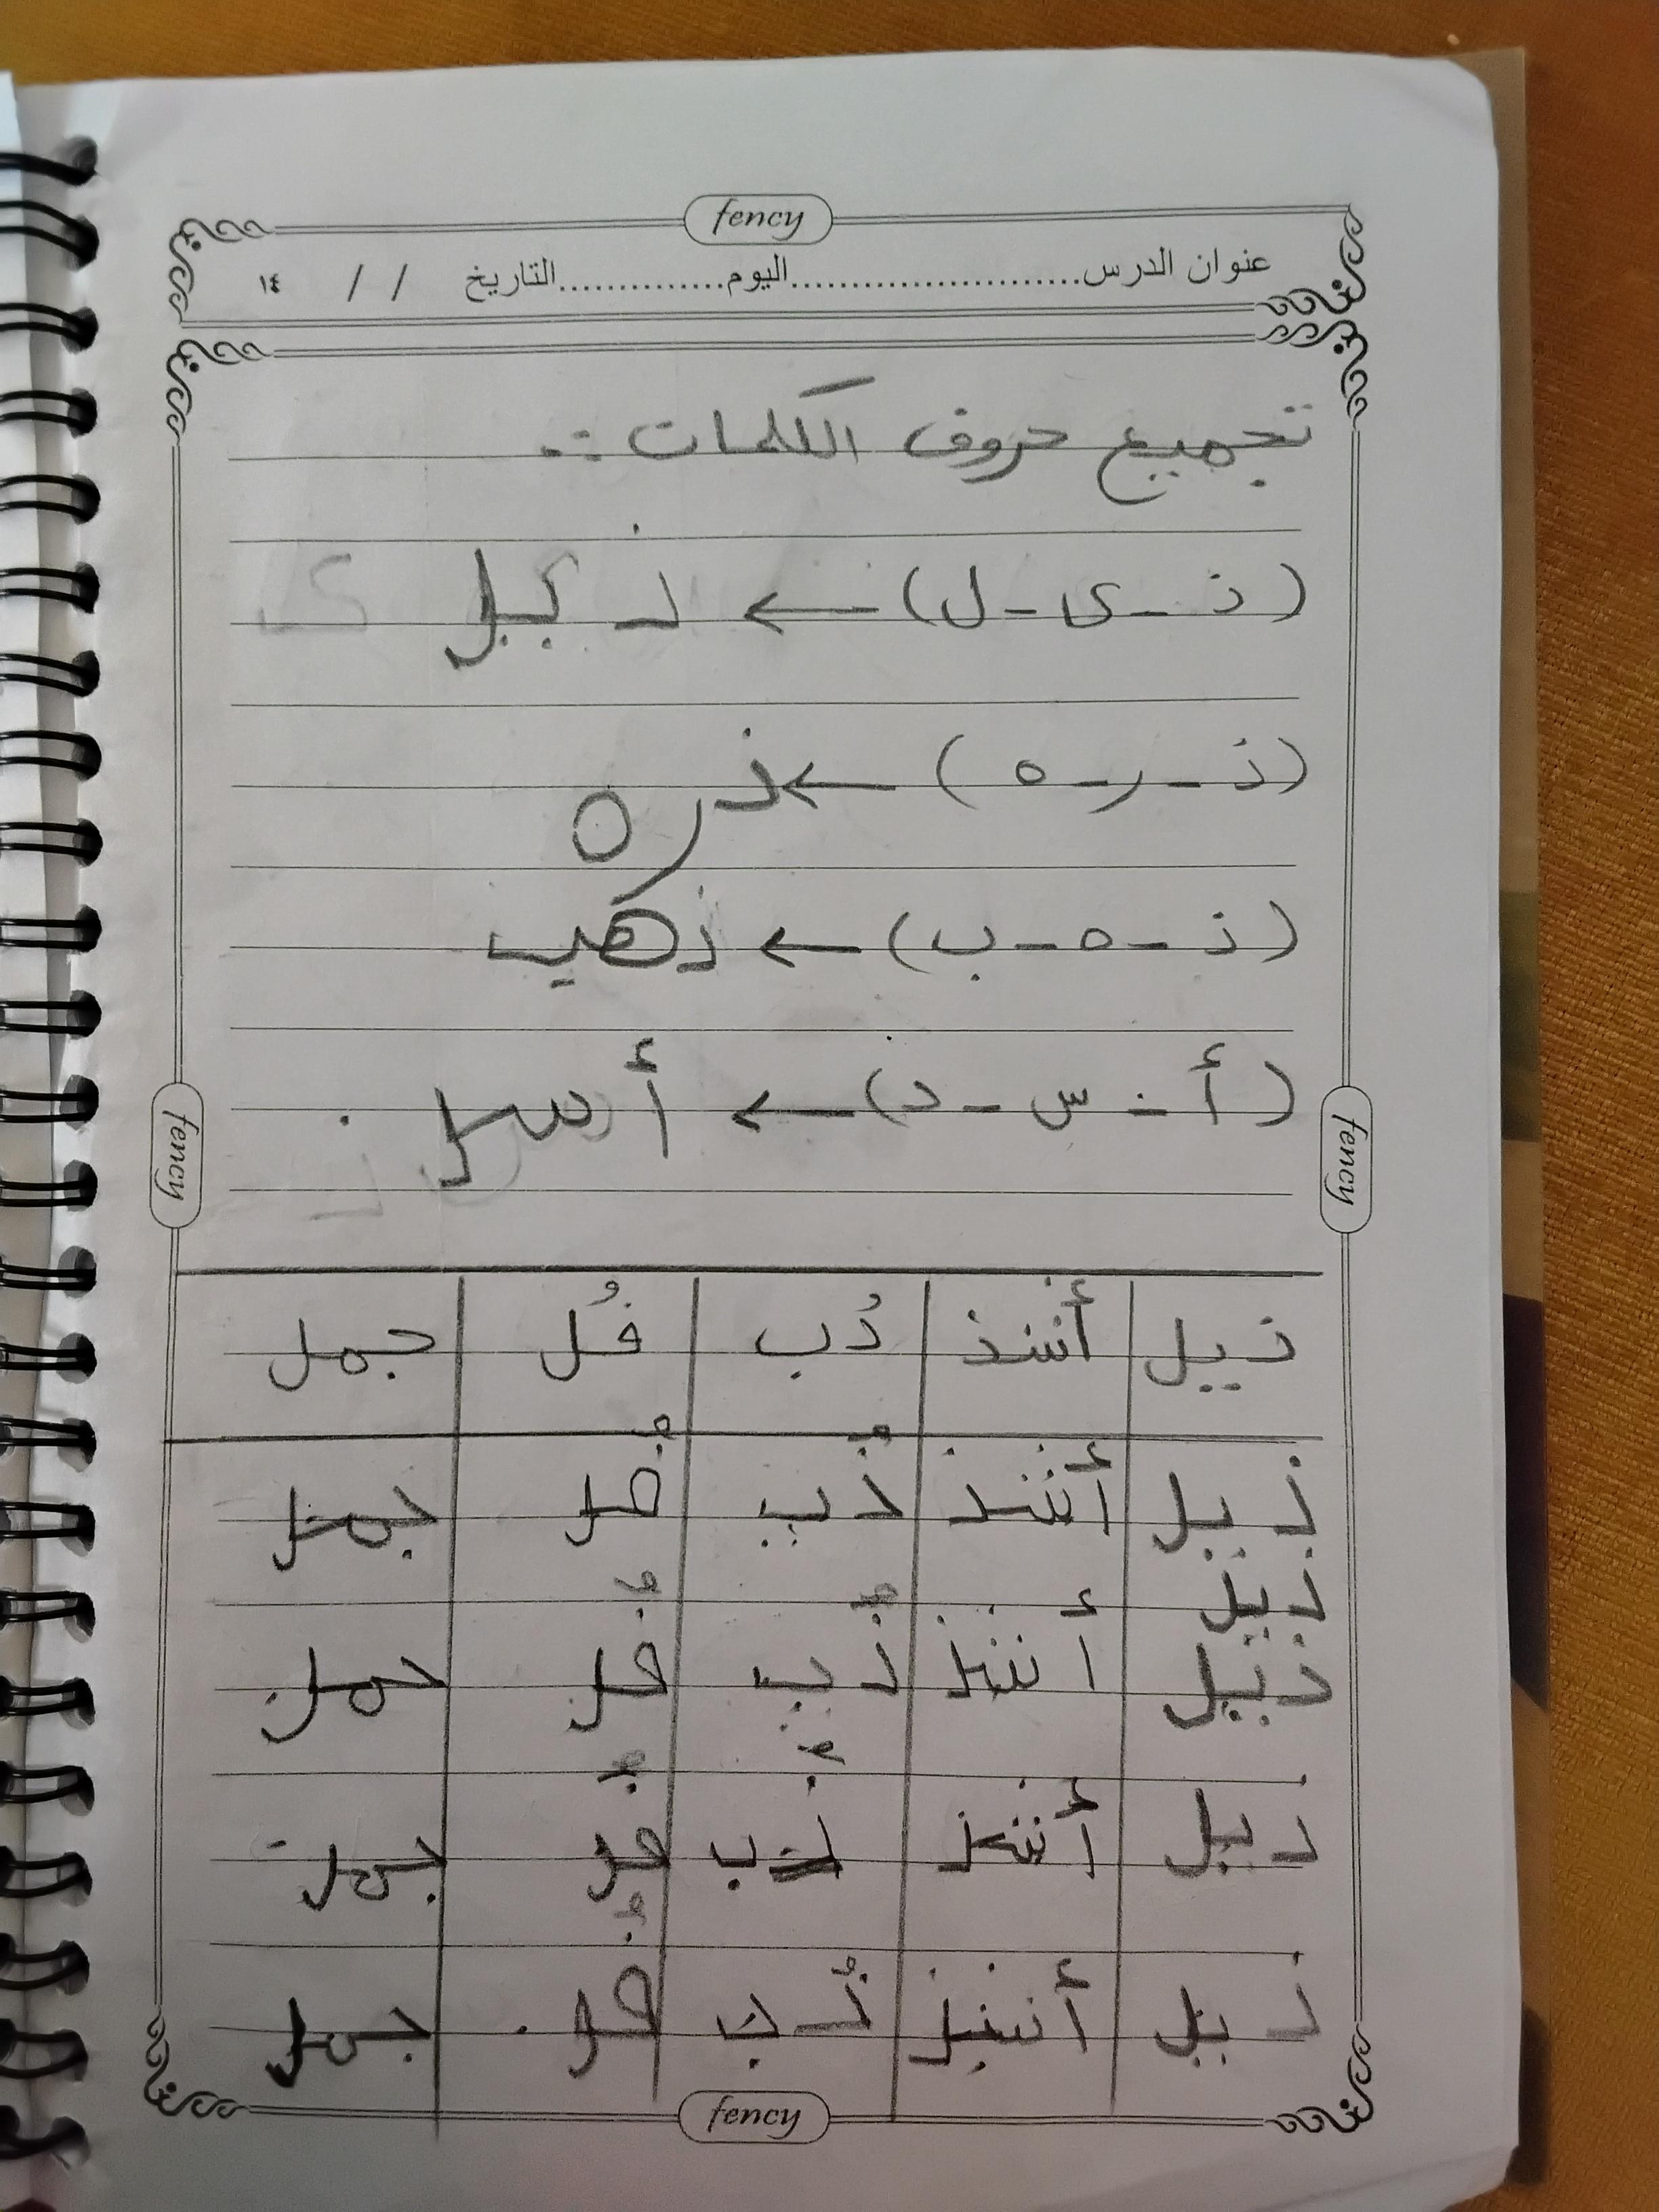 fency
عنوان الدرس........................اليوم..............التاريخ / / ١٤
تجميع حروف الكلمات :-
(ذ - ى - ل) ← ذيل
(ذ - ر - ه) ← ذره
(ذ - ه - ب) ← ذهب
(أ - س - د) ← أسد
fency
fency
ذيل أنشذ دُب فُل جمل
ذيل أنشذ دُب فُل جمل
ذيل
ذيل أنشذ دُب فُل جمل
ذيل أنشذ دُب فُل جمل
ذيل أنشذ دُب فُل جمل
fency